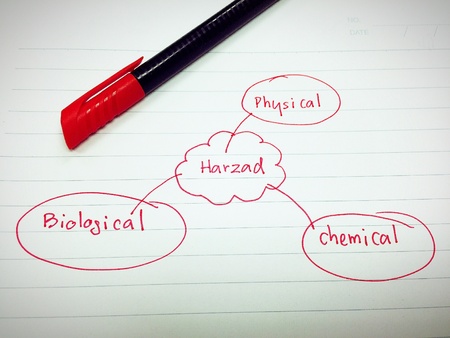 NO.
DATE / /
Physical
Harzad
Biological
chemical